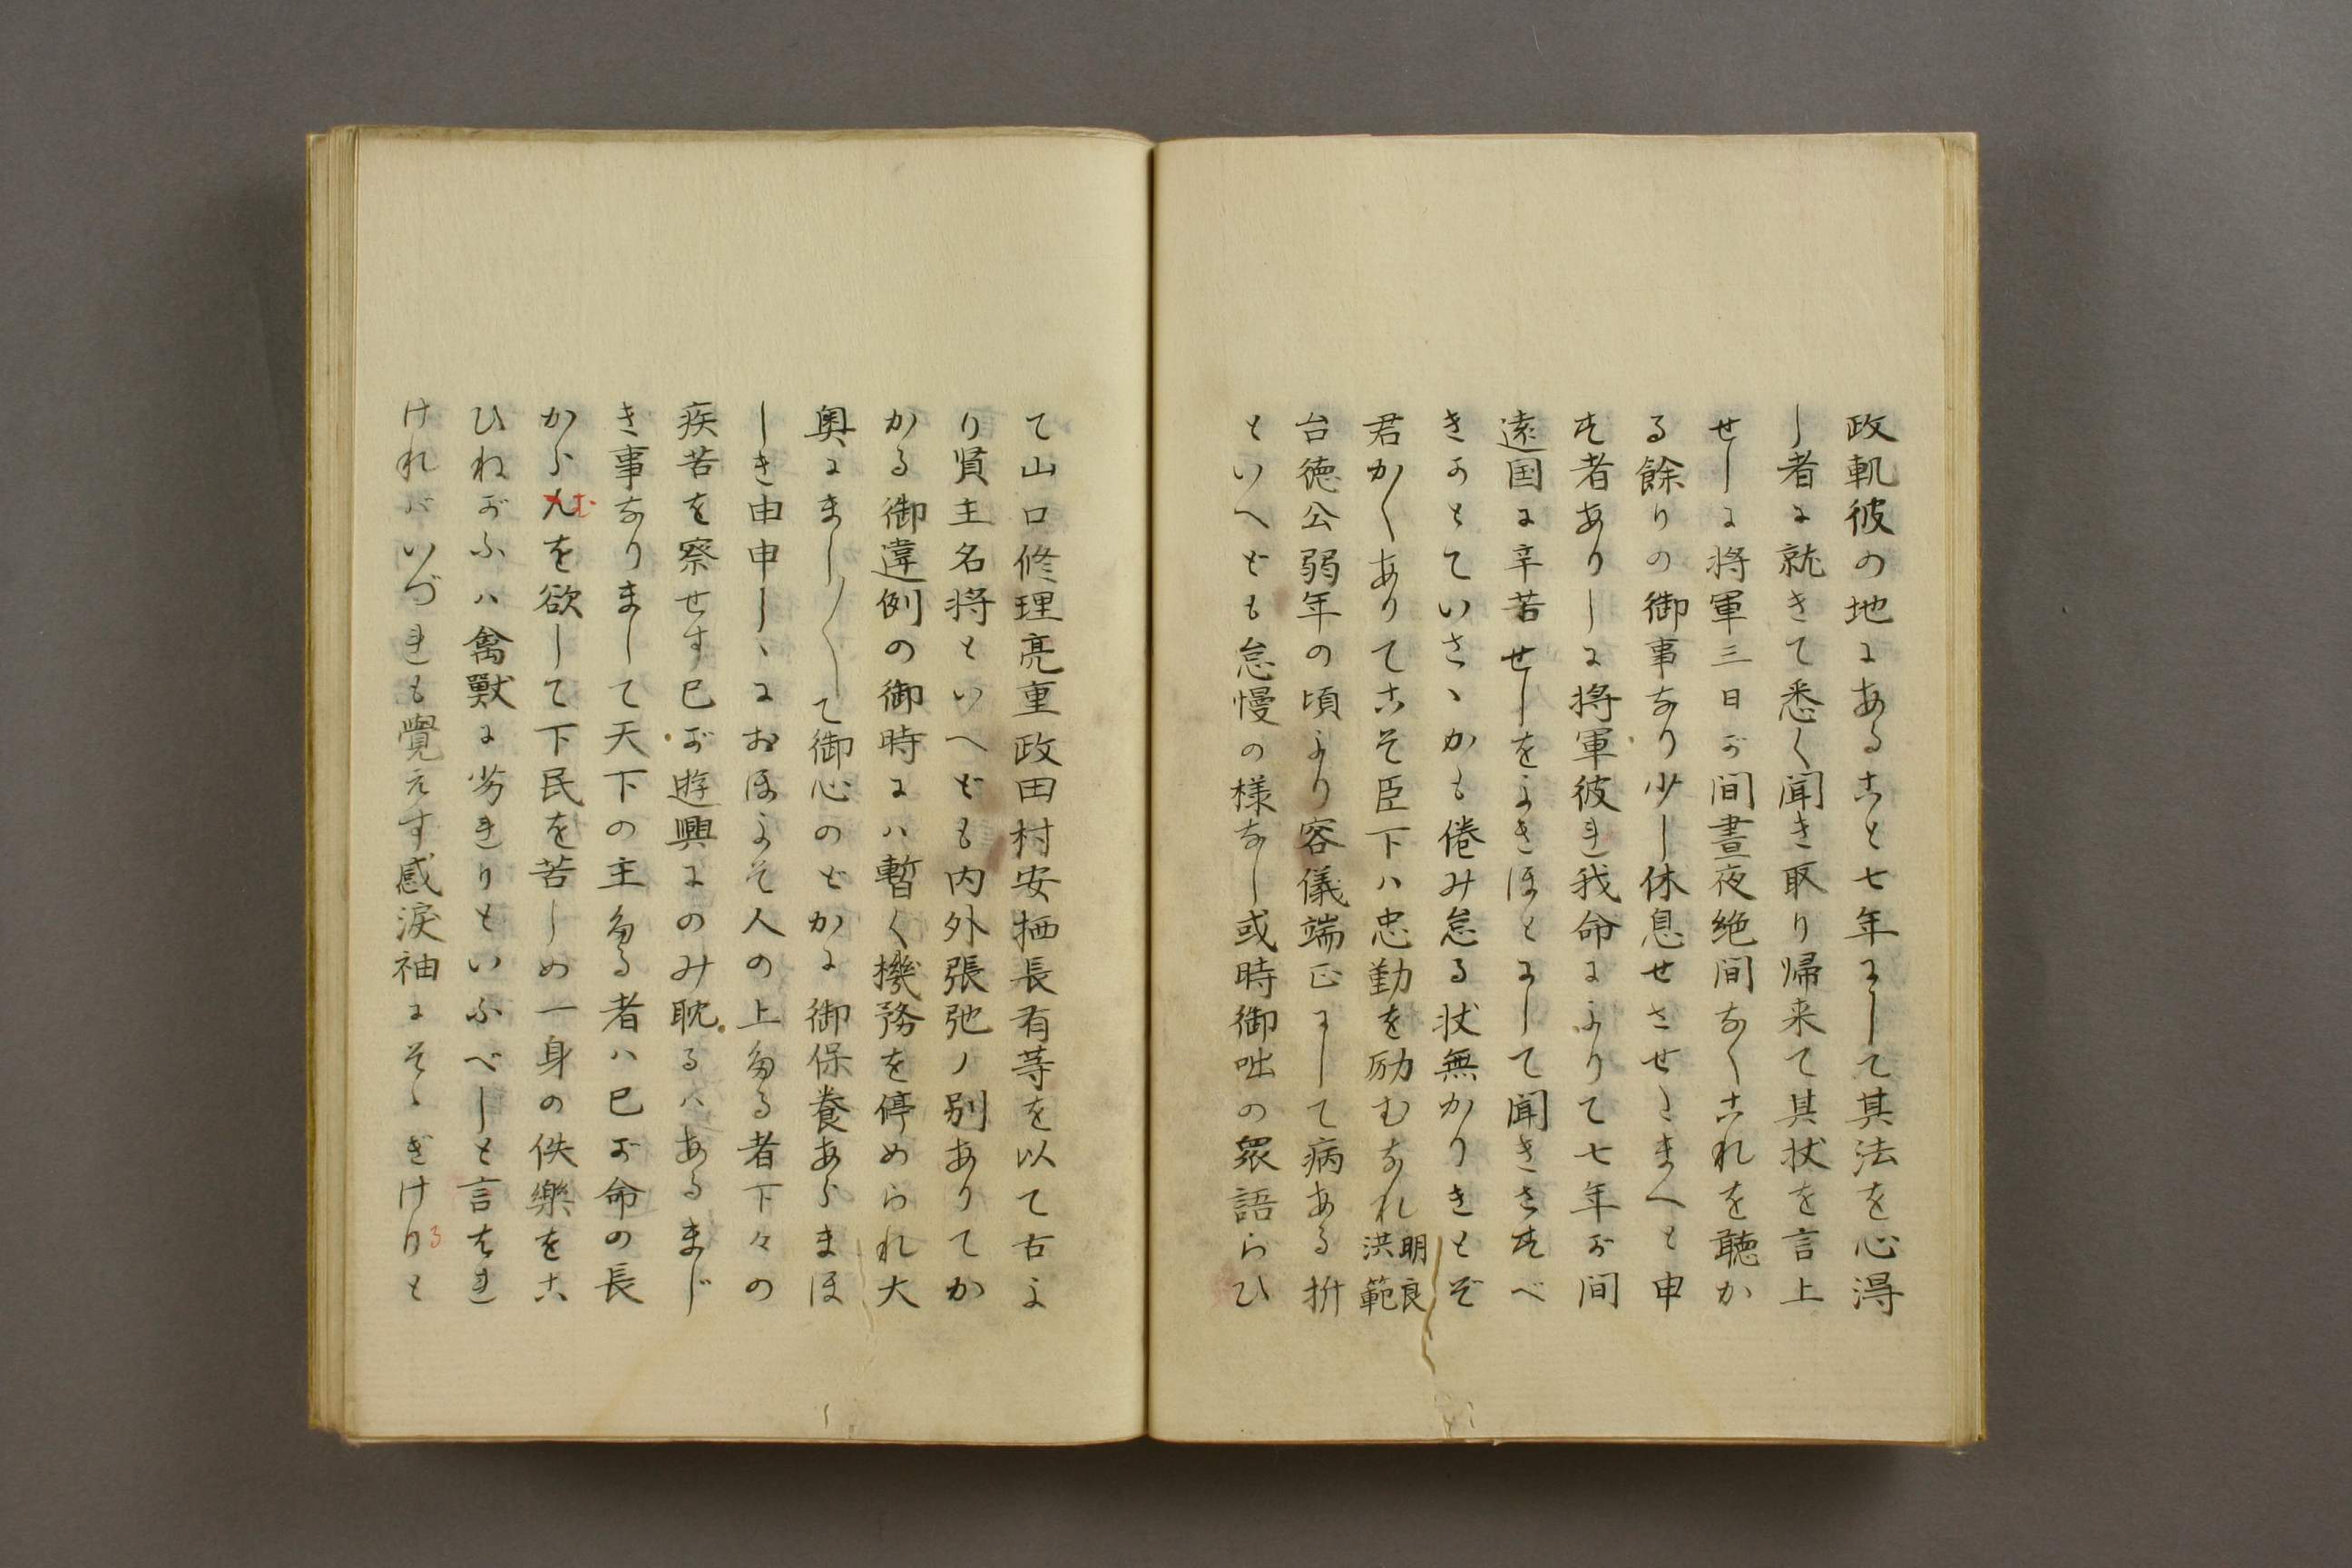 政軏彼の地にあること七年にして其法を心得
し者に就きて悉く聞き取り帰来て其状を言上
せしに将軍三日が間晝夜絶間なくこれを聴か
る餘りの御事なり少し休息せさせたまへと申
す者ありしに将軍彼れ我命によりて七年が間
遠国に辛苦せしをよきほとにして聞きさすべ
きかとていさゝかも倦み怠る状無かりきとぞ
君かくありてこそ臣下ハ忠勤を励むなれ明良洪範
台徳公弱年の頃より容儀端正にして病ある折
といへども怠慢の様なし或時御咄の衆語らひ
て山口修理亮重政田村安栖長有等を以て古よ
り賢主名将といへども内外張弛ノ別ありてか
かる御違例の御時にハ暫く機務を停められ大
奥にまし〳〵て御心のどかに御保養あらまほ
しき由申しゝにおほよそ人の上たる者下々の
疾苦を察せす已が遊興にのみ耽るハあるまじ
き事なりまして天下の主たる者ハ已が命の長
からんむを欲して下民を苦しめ一身の佚樂をこ
ひねがふハ禽獸に劣れりといふべしと言はれ
けれバいづれも覺えす感涙袖にそゝぎけりると